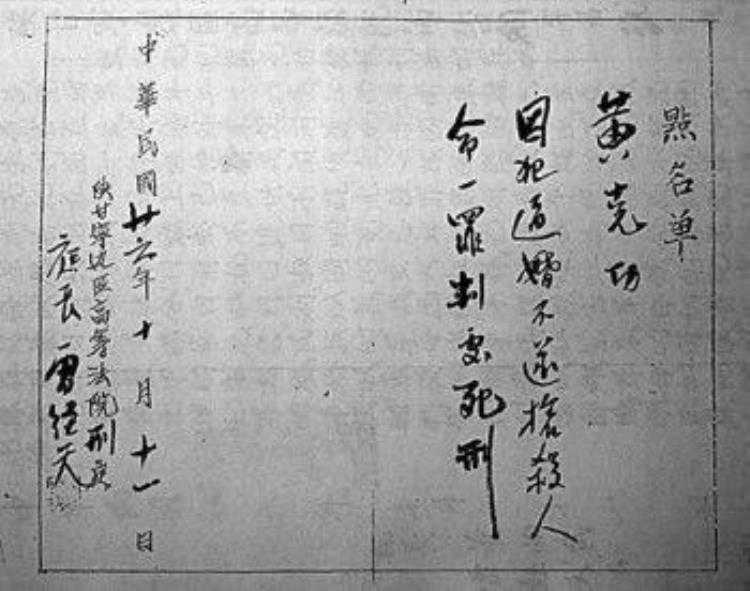 點名单
黄克功
因犯逼婚不遂槍殺人
命一罪判處死刑
中華民国廿六年十月十一日
陕甘寧边区高等法院刑庭
庭長雷经天